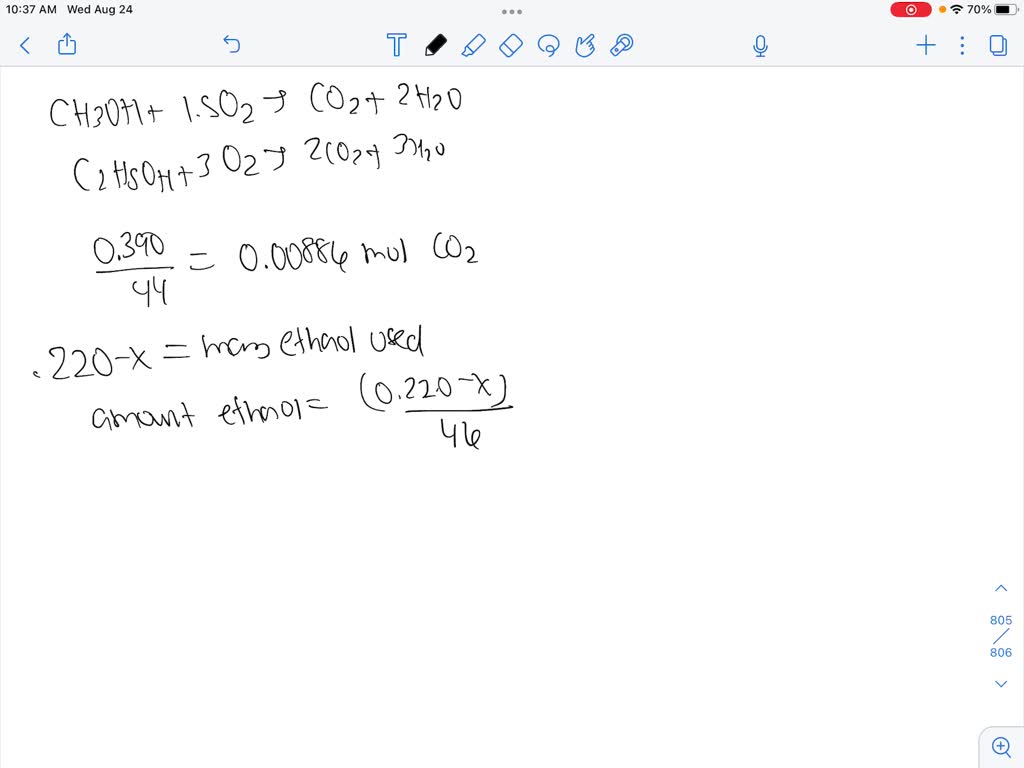 10:37 AM Wed Aug 24
70%
CH3OH + 1.5O2 → CO2 + 2H2O
C2H5OH + 3O2 → 2CO2 + 3H2O
0.390
44
= 0.00886 mol CO2
.220-x = mass ethanol used
amount ethanol = (0.220-x)
46
805
806